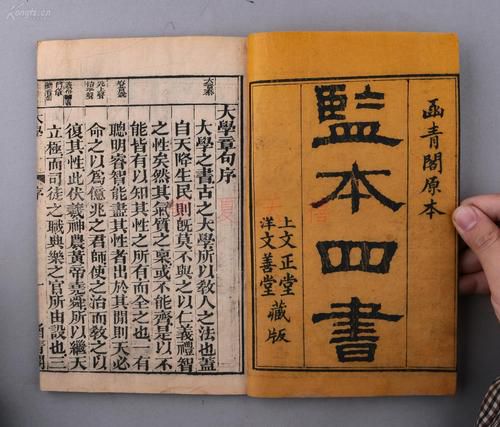 函青閣原本
監本四書
上文正堂
洋文善堂
藏版
大學章句序
大學之書古之大學所以教人之法也蓋
自天降生民則既莫不與之以仁義禮智
之性矣然其氣質之稟或不能齊是以不
能皆有以知其性之所有而全之也一有
聰明睿智能盡其性者出於其閒則天必
命之以為億兆之君師使之治而教之以
復其性此伏羲神農黃帝堯舜所以繼天
立極而司徒之職典樂之官所由設也三
大學 序